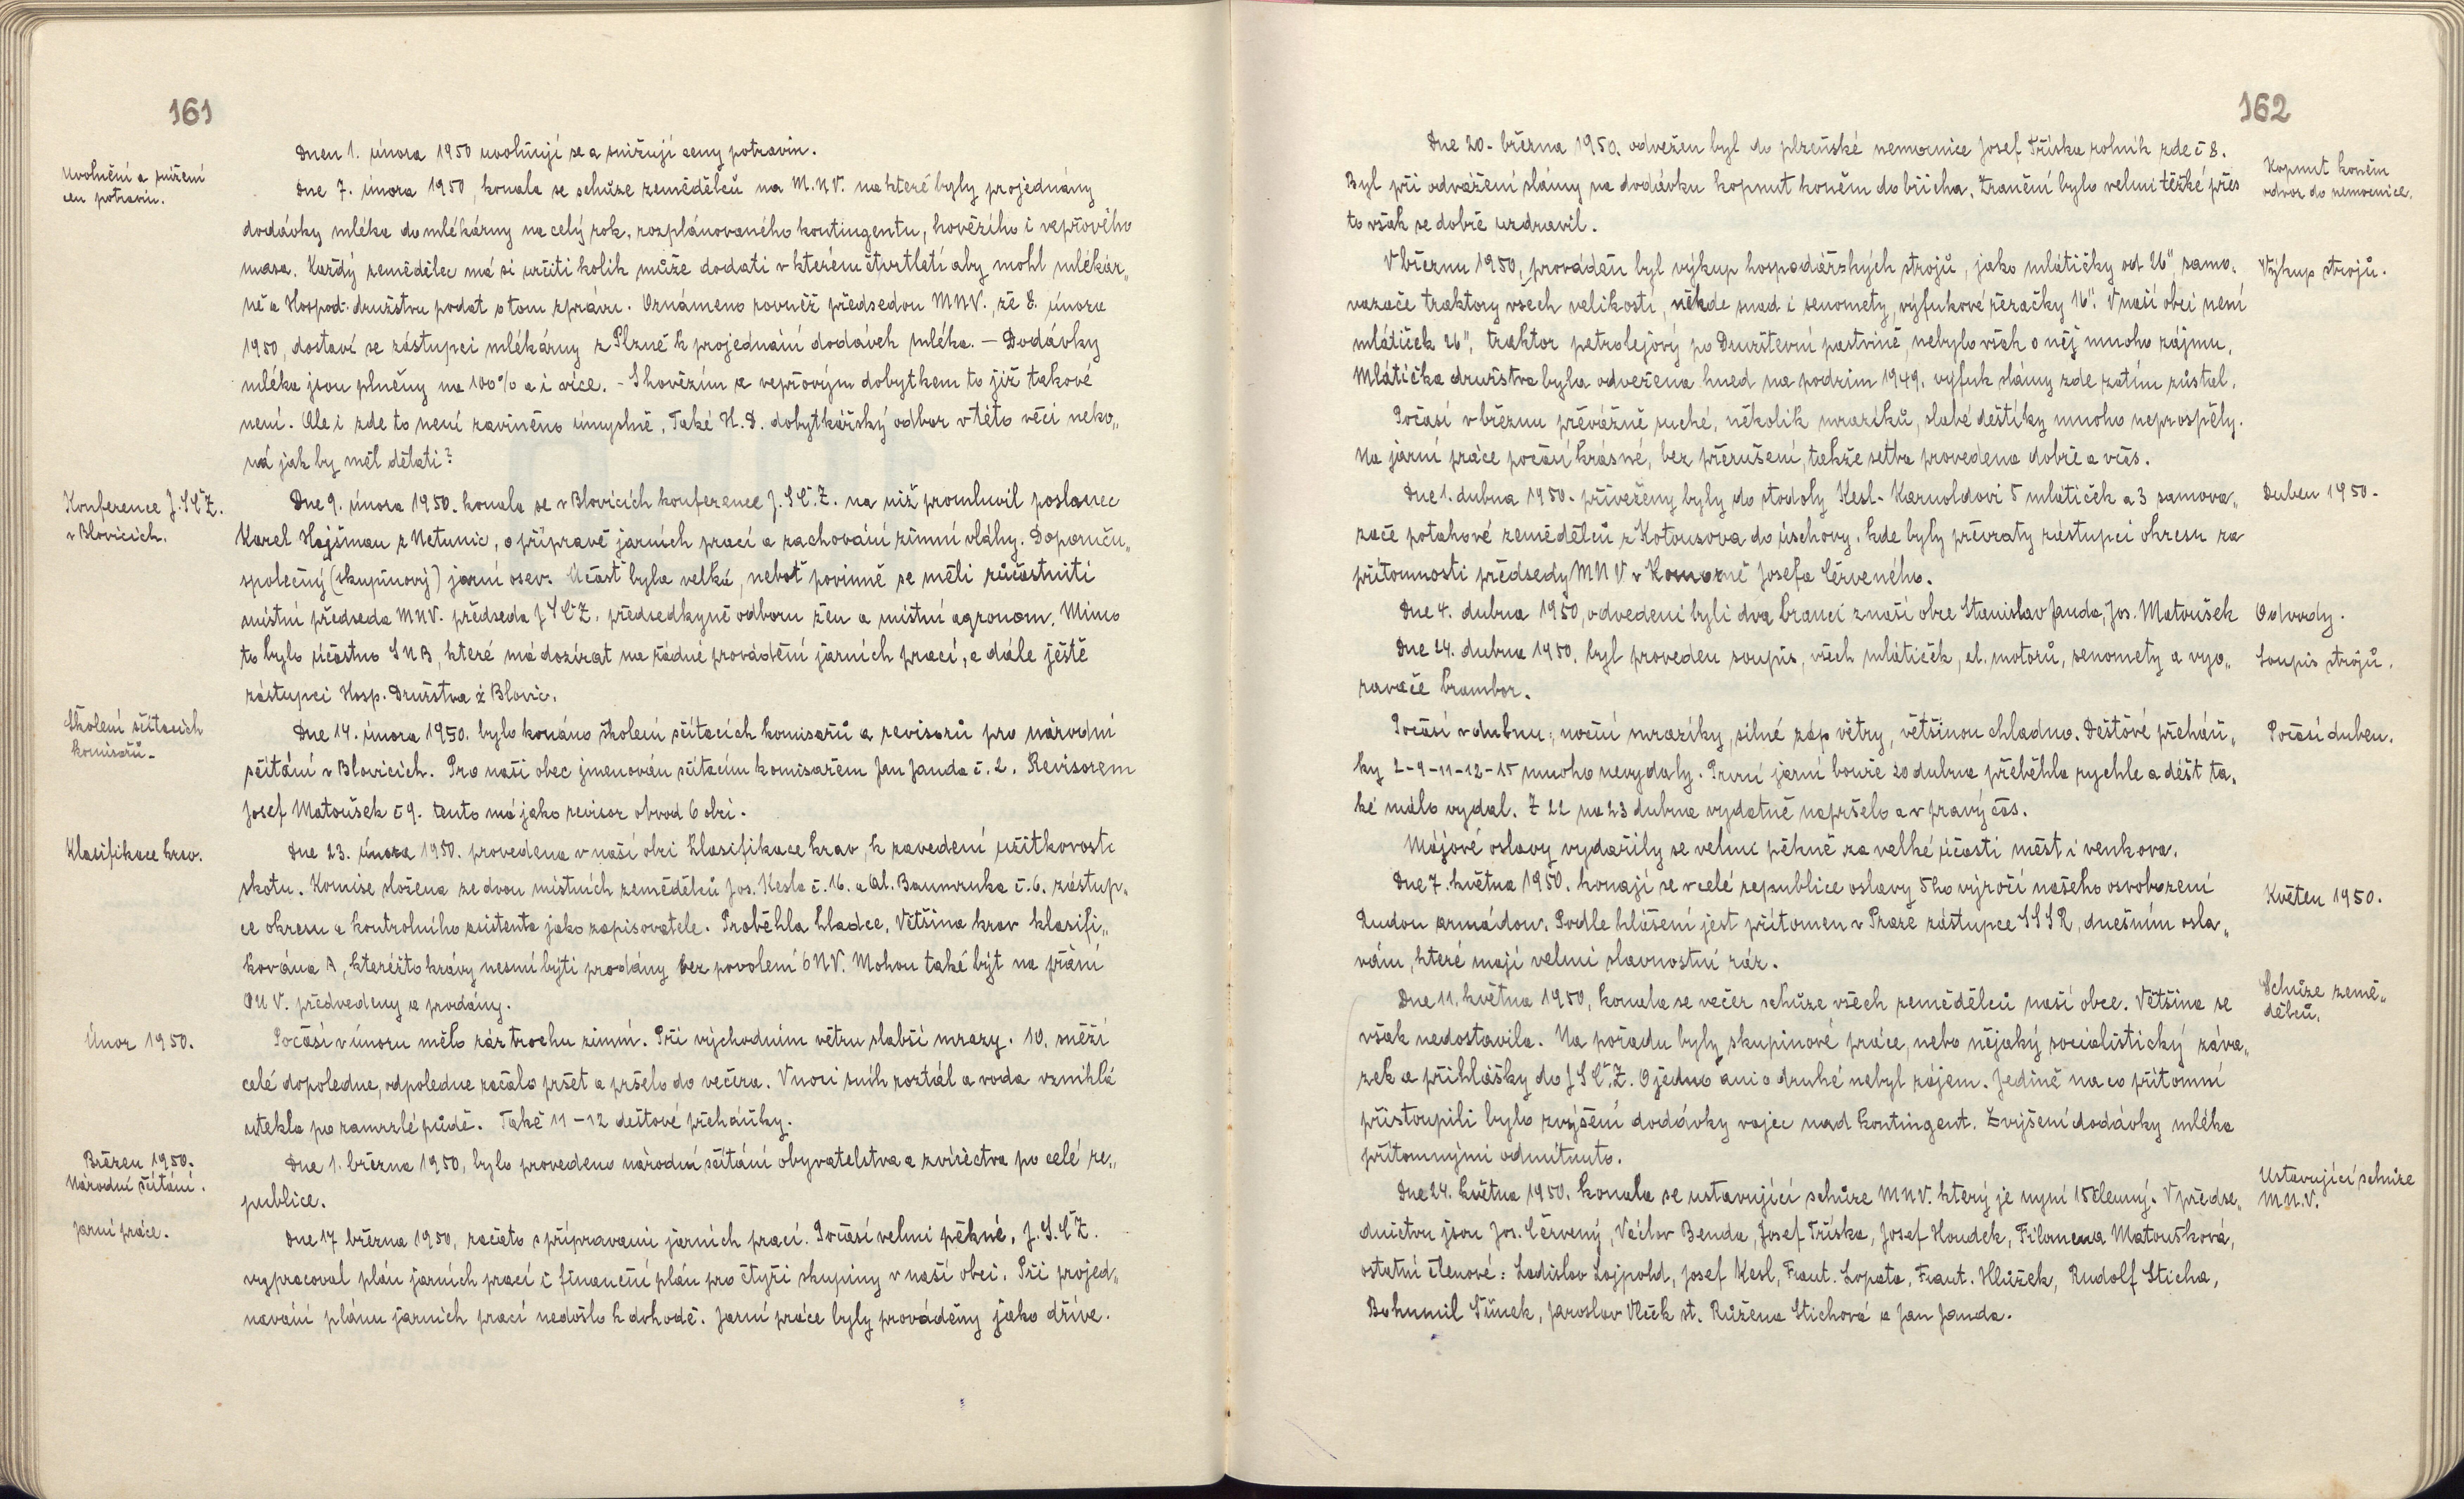 161
Dnem 1. února 1950 uvolňují se a snižují ceny potravin.
Uvolnění a snížení
cen potravin.
Dne 7. února 1950, konala se schůze zemědělců na M.N.V. na které byly projednány
dodávky mléka do mlékárny na celý rok, rozplánovaného kontingentu, hovězího i vepřového
masa. Každý zemědělec má si určiti kolik může dodati v kterém čtvrtletí aby mohl mlékár„
ně a Hospod. družstvu podat o tom zprávu. Oznámeno rovněž předsedou MNV., že 8. února
1950, dostaví se zástupci mlékárny z Plzně k projednání dodávek mléka. — Dodávky
mléka jsou plněny na 100% a i více. - S hovězím a vepřovým dobytkem to již takové
není. Ale i zde to není zaviněno úmyslně. Také H.D. dobytkářský odbor v této věci neko„
ná jak by měl dělati?
Konference J.SČZ.
v Blovicích.
Dne 9. února 1950. konala se v Blovicích konference J.SČ.Z. na níž promluvil poslanec
Karel Hajšman z Netunic, o přípravě jarních prací a zachování zimní vláhy. Doporuču„
společný (skupinový) jarní osev. Účast byla velká, neboť povinně se měli zúčastniti
místní předseda MNV. předseda JSČZ. předsedkyně odboru žen a místní agronom. Mimo
to bylo účastno SNB, které má dozírat na řádné provádění jarních prací, a dále ještě
zástupci Hosp. Družstva z Blovic.
Školení sčítacích
komisařů.
Dne 14. února 1950. bylo konáno školení sčítacích komisařů a revisorů pro národní
sčítání v Blovicích. Pro naši obec jmenován sčítacím komisařem Jan Janda č. 2. Revisorem
Josef Matoušek č 9. tento má jako revisor obvod 6 obcí.
Klasifikace krav.
Dne 23. února 1950. provedena v naší obci klasifikace krav, k zavedení užitkovosti
skotu. Komise složena ze dvou místních zemědělců Jos. Kesla č. 16. a Al. Baumruka č. 6. zástup„
ce okresu a kontrolního asistenta jako zapisovatele. Proběhla hladce. Většina krav klasifi„
kována A, kteréžto krávy nesmí býti prodány bez povolení ONV. Mohou také být na přání
ONV. předvedeny a prodány.
Únor 1950.
Počasí v únoru mělo ráz trochu zimní. Při východním větru slabší mrazy. 10. sněží
celé dopoledne, odpoledne začalo pršet a pršelo do večera. V noci sníh roztál a voda vzniklá
utekla po zamrzlé půdě. Také 11 – 12 dešťové přeháňky.
Březen 1950.
Národní sčítání.
Dne 1. března 1950, bylo provedeno národní sčítání obyvatelstva a zvířectva po celé re„
publice.
Jarní práce.
Dne 17 března 1950, začato s přípravami jarních prací. Počasí velmi pěkné, J.S.ČZ.
vypracoval plán jarních prací i finanční plán pro čtyři skupiny v naší obci. Při projed„
návání plánu jarních prací nedošlo k dohodě. Jarní práce byly prováděny jako dříve.
162
Dne 20. března 1950. odvežen byl do plzeňské nemocnice Josef Tříska rolník zde č 8.
Kopnut koněm
odvoz do nemocnice.
Byl při odvážení slámy na dodávku kopnut koněm do břicha. Zranění bylo velmi těžké přes
to však se dobře uzdravil.
V březnu 1950, prováděn byl výkup hospodářských strojů, jako mlátičky od 26", samo„
Výkup strojů.
vazače traktory všech velikostí, někde snad i senomety, výfukové řezačky 16". V naší obci není
mlátiček 26", traktor petrolejový po Družstevní pastvině, nebylo však o něj mnoho zájmu.
Mlátička družstva byla odvežena hned na podzim 1949. výfuk slámy zde zatím zůstal.
Počasí v březnu převážně suché, několik mrazíků, slabé deštíky mnoho neprospěly.
Na jarní práce počasí krásné, bez přerušení, takže setba provedena dobře a včas.
Dne 1. dubna 1950. přiveženy byly do stodoly Kesl. Karnoldovi 5 mlátiček a 3 samova„
Duben 1950.
zače potahové zemědělců z Kotousova do úschovy. kde byly převzaty zástupci okresu za
přítomnosti předsedy MNV v Komorně Josefa Červeného.
Dne 4. dubna 1950, odvedeni byli dva branci z naší obce Stanislav Janda, Jos. Matoušek
Odvody.
Dne 24. dubna 1950. byl proveden soupis, všech mlátiček, el. motorů, senomety a vyo„
Soupis strojů.
ravače brambor.
Počasí v dubnu; noční mrazíky, silné záp větry, většinou chladno. Dešťové přeháň„
Počasí duben.
ky 2-9-11-12-15 mnoho nevydaly. První jarní bouře 20 dubna přeběhla rychle a déšť ta„
ké málo vydal. Z 22 na 23 dubna vydatně napršelo a v pravý čas.
Májové oslavy vydařily se velmi pěkně za velké účasti měst i venkova.
Dne 7. května 1950. konají se v celé republice oslavy 5ho výročí našeho osvobození
Květen 1950.
Rudou armádou. Podle hlášení jest přítomen v Praze zástupce SSSR, dnešním osla„
vám, které mají velmi slavnostní ráz.
Dne 11. května 1950, konala se večer schůze všech zemědělců naší obce. Většina se
Schůze země„
dělců.
však nedostavila. Na pořadu byly skupinové práce, nebo nějaký socialistický záva„
zek a přihlášky do JSČ.Z. O jedno ani o druhé nebyl zájem. Jedině na co přítomní
přistoupili bylo zvýšení dodávky vajec nad kontingent. Zvýšení dodávky mléka
přítomnými odmítnuto.
Dne 24. května 1950. konala se ustavující schůze MNV. který je nyní 15členný. V předse„
Ustavující schůze
M.N.V.
dnictvu jsou Jos. Červený, Václav Benda, Josef Tříska, Josef Houdek, Filomena Matoušková,
ostatní členové: Ladislav Lajpold, Josef Kesl, Frant. Lopata, Frant. Hlůžek, Rudolf Sticha,
Bohumil Šůnek, Jaroslav Vlček st. Růžena Stichová a Jan Janda.